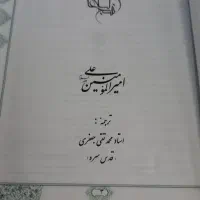 امیرالمؤمنین علی
ترجمه:
استاد محمد تقی جعفری
(قدس سره)